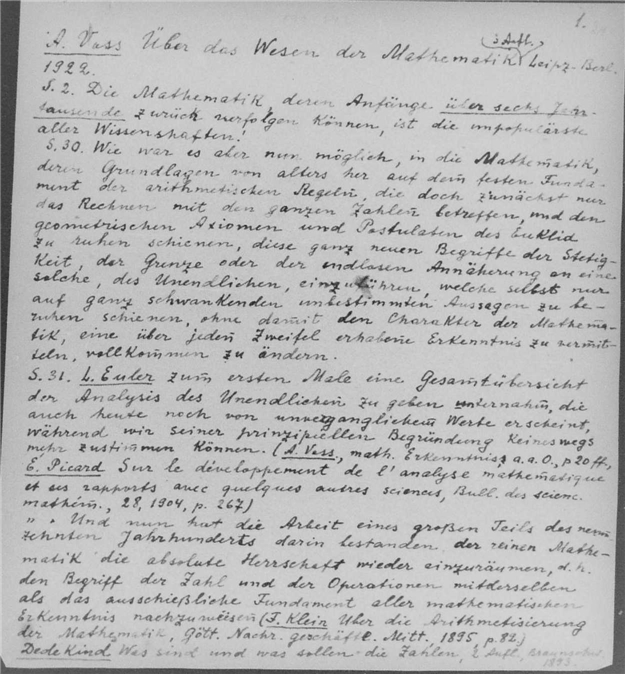 1.
3 Aufl.
A. Voss Über das Wesen der Mathematik Leipz-Berl.
1922.
S. 2. Die Mathematik, deren Anfänge über sechs Jahr-
tausende zurück verfolgen können, ist die unpopulärste
aller Wissenschaften!
S. 30. Wie war es aber nun möglich, in die Mathematik,
deren Grundlagen von alters her auf dem festen Funda-
ment der arithmetischen Regeln, die doch zunächst nur
das Rechnen mit den ganzen Zahlen betreffen, und den
geometrischen Axiomen und Postulaten des Euklid
zu ruhen schienen, diese ganz neuen Begriffe der Stetig-
keit, der Grenze oder der endlosen Annäherung an eine
solche, des Unendlichen, einzuführen, welche selbst nur
auf ganz schwankenden unbestimmten Aussagen zu be-
ruhen schienen, ohne damit den Charakter der Mathema-
tik, eine über jeden Zweifel erhabene Erkenntnis zu vermit-
teln, vollkommen zu ändern.
S. 31. L. Euler zum ersten Male eine Gesamtübersicht
der Analysis des Unendlichen zu geben unternahm, die
auch heute noch von unvergänglichem Werte erscheint,
während wir seiner prinzipiellen Begründung keineswegs
mehr zustimmen können. (A. Voss, math. Erkenntniss, a. a. O., p 20 ff,
E. Picard Sur le développement de l'analyse mathématique
et ses rapports avec quelques autres sciences, Bull. des scienc.
mathém., 28, 1904, p. 267)
" " Und nun hat die Arbeit eines großen Teils des neun
zehnten Jahrhunderts darin bestanden der reinen Mathe-
matik die absolute Herrschaft wieder einzuräumen, d. h.
den Begriff der Zahl und der Operationen mitderselben
als das ausschießliche Fundament aller mathematischen
Erkenntnis nachzuweisen (F. Klein Über die Arithmetisierung
der Mathematik, Gött. Nachr. geschäftl. Mitt. 1895 p. 82)
Dedekind Was sind und was sollen die Zahlen, 2 Aufl., Braunschw.
1893.